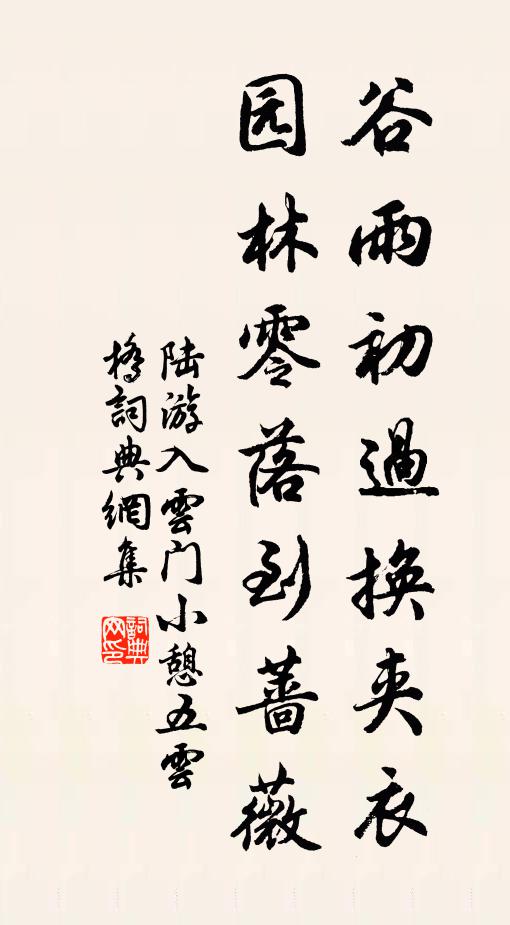 谷雨初過換夹衣
园林零落到蔷薇
陆游入雲门小憩五雲
橋詞典網集
詞典网印